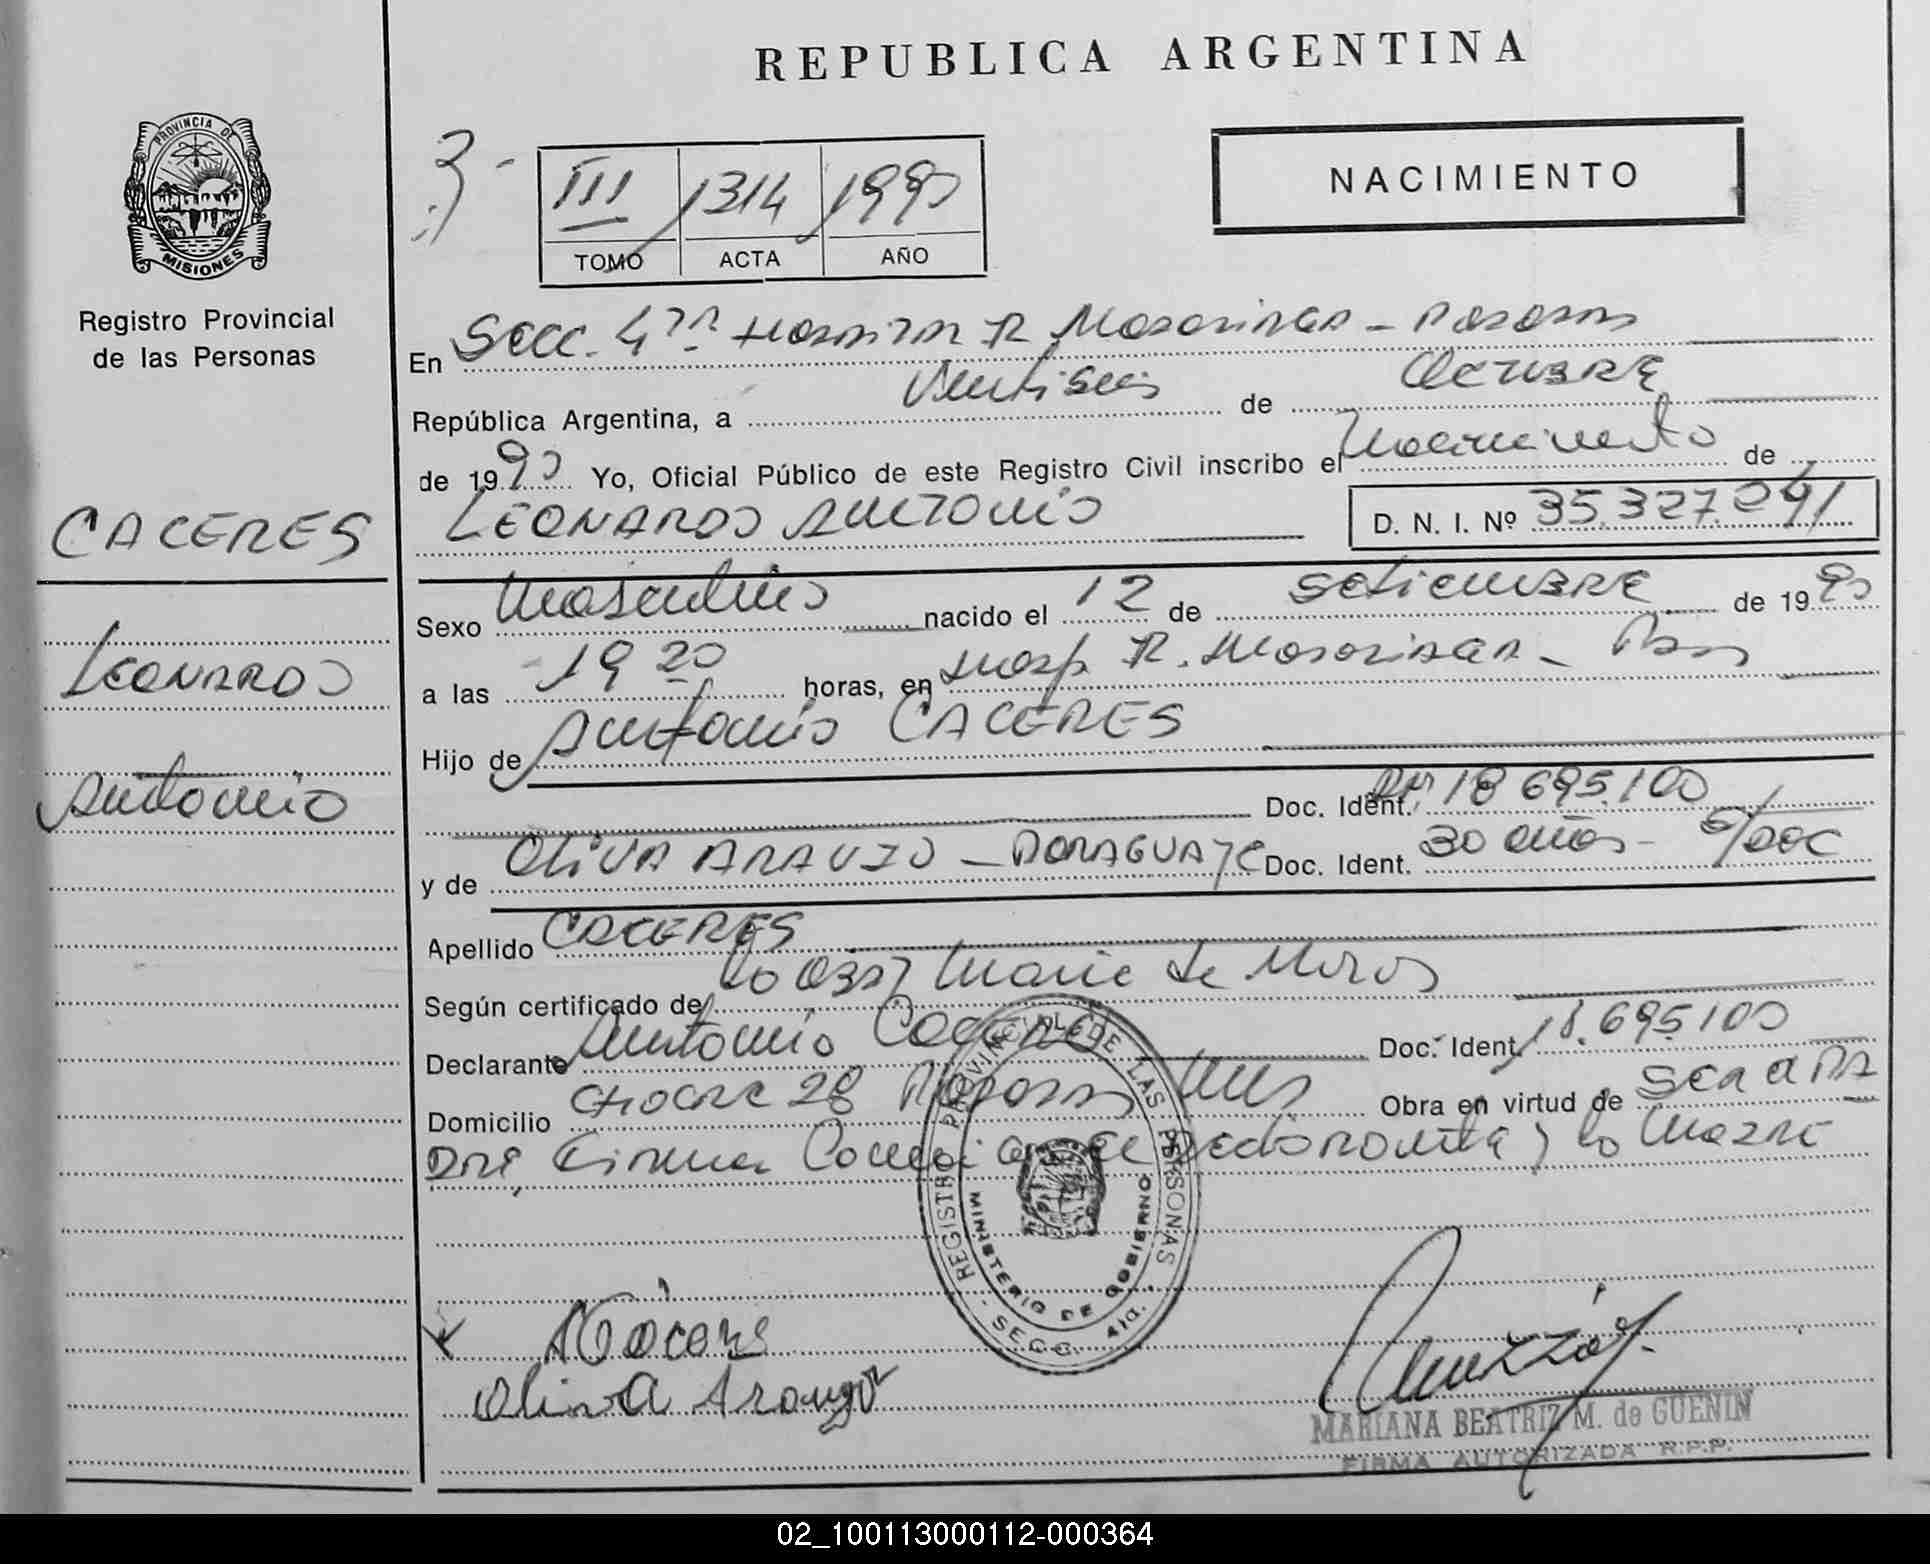 REPUBLICA ARGENTINA
PROVINCIA DE
MISIONES
Registro Provincial
de las Personas
III 1314 1990
TOMO ACTA AÑO
NACIMIENTO
En Secc. 4ta Hospital R Madariaga - Posadas
República Argentina, a Veintiseis de Octubre
de 1990 Yo, Oficial Público de este Registro Civil inscribo el Nacimiento de
LEONARDO ANTONIO D. N. I. Nº 35.327.041
CACERES
Leonardo
Antonio
Sexo Masculino nacido el 12 de Setiembre de 1990
a las 19 20 horas, en Hosp R. Madariaga - Pdas
Hijo de Antonio CACERES
Doc. Ident. 18 695.100
y de OLIVA ARAUJO - PARAGUAYA Doc. Ident. 30 años - S/DOC
Apellido CACERES
Según certificado de la Obst Maria de
Declarante Antonio Caceres Doc. Ident. 18.695.100
Domicilio Chacra 28 Posadas Mnes Obra en virtud de
Firma el Declarante y la Madre
REGISTRO PROVINCIAL DE LAS PERSONAS
MINISTERIO DE GOBIERNO
- SECC. 4ta. -
A Cácere
Oliva Araujo
MARIANA BEATRIZ M. de GUENIN
FIRMA AUTORIZADA R.P.P.
02_100113000112-000364